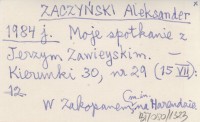 ZACZYŃSKI Aleksander
1984 j. Moje spotkanie z
Jerzym Zawieyskim. –
Kierunki 30, nr 29 (15 VII):
12.
(m.in.
W Zakopanem, na Harendzie